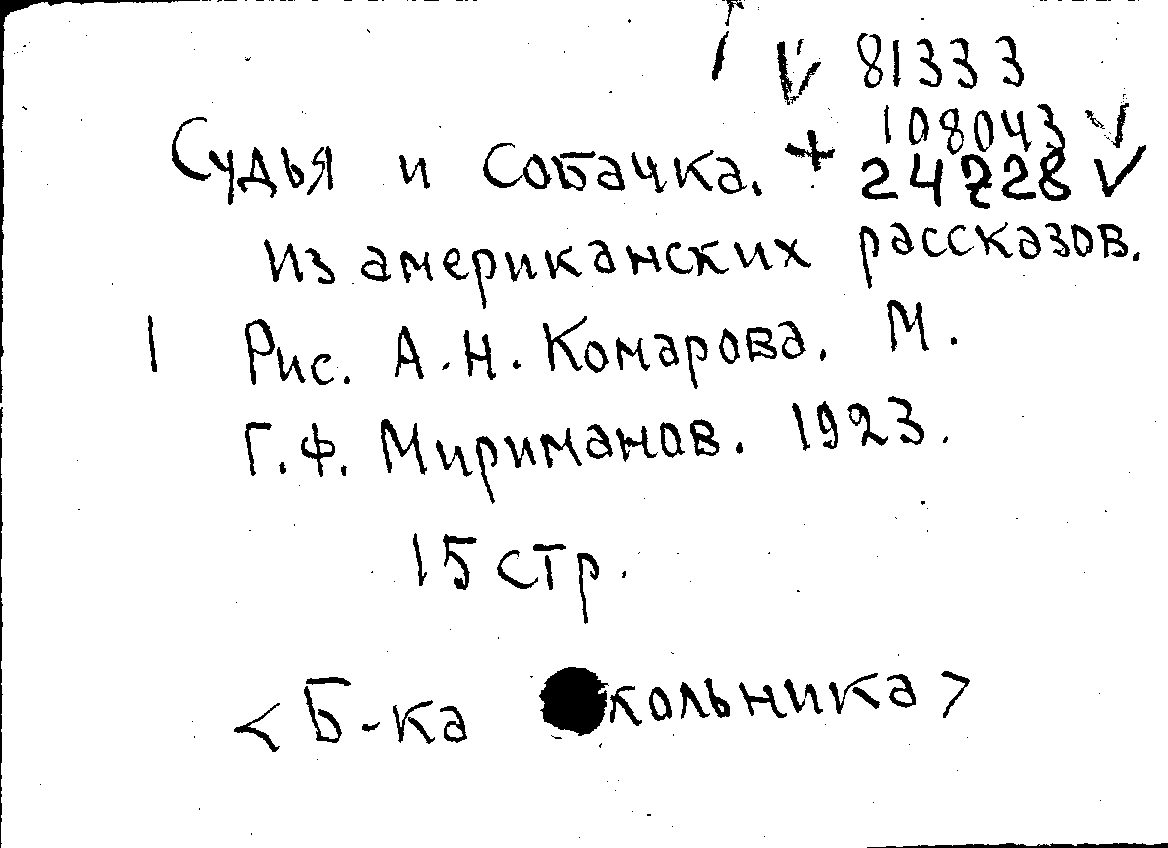 V 81333
108043 V
Судья и собачка. + 24728 V
из американских рассказов.
| Рис. А.Н. Комарова. М.
Г.Ф. Мириманов. 1923.
15 стр.
<Б-ка кольника>